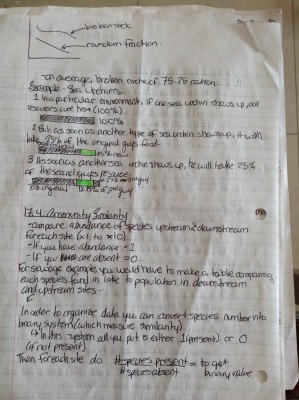 broken stick
random fraction.
-on average, broken niche of 75:25 ration
Example - Sea Urchins
1 In a particular environment, if one sea urchin shows up, all
resources our his (100%)
100%
2 But as soon as another type of sea urchin shows up, it will
take 25% of the original guys food-
25% new
3 As soon as another sea urchin shows up, he will take 25%
of the second guys resource
6.25% 3rd guy
75% original 18.75% 2nd guy
17.4: Community Similarity
-compare abundance of species upstream & downstream
for each site (x1 to x10)
-If you have abundance = 1
-If you are absent = 0.
For sewage example you would have to make a table comparing
each species found in lake to population in downstream
and upstream sites -
In order to organize data you can convert species number into
binary system (which measure similarity)
↳ In this system all you put is either 1 (present) or 0
(if not present)
Then for each site do # species present = to get
# species absent binary value